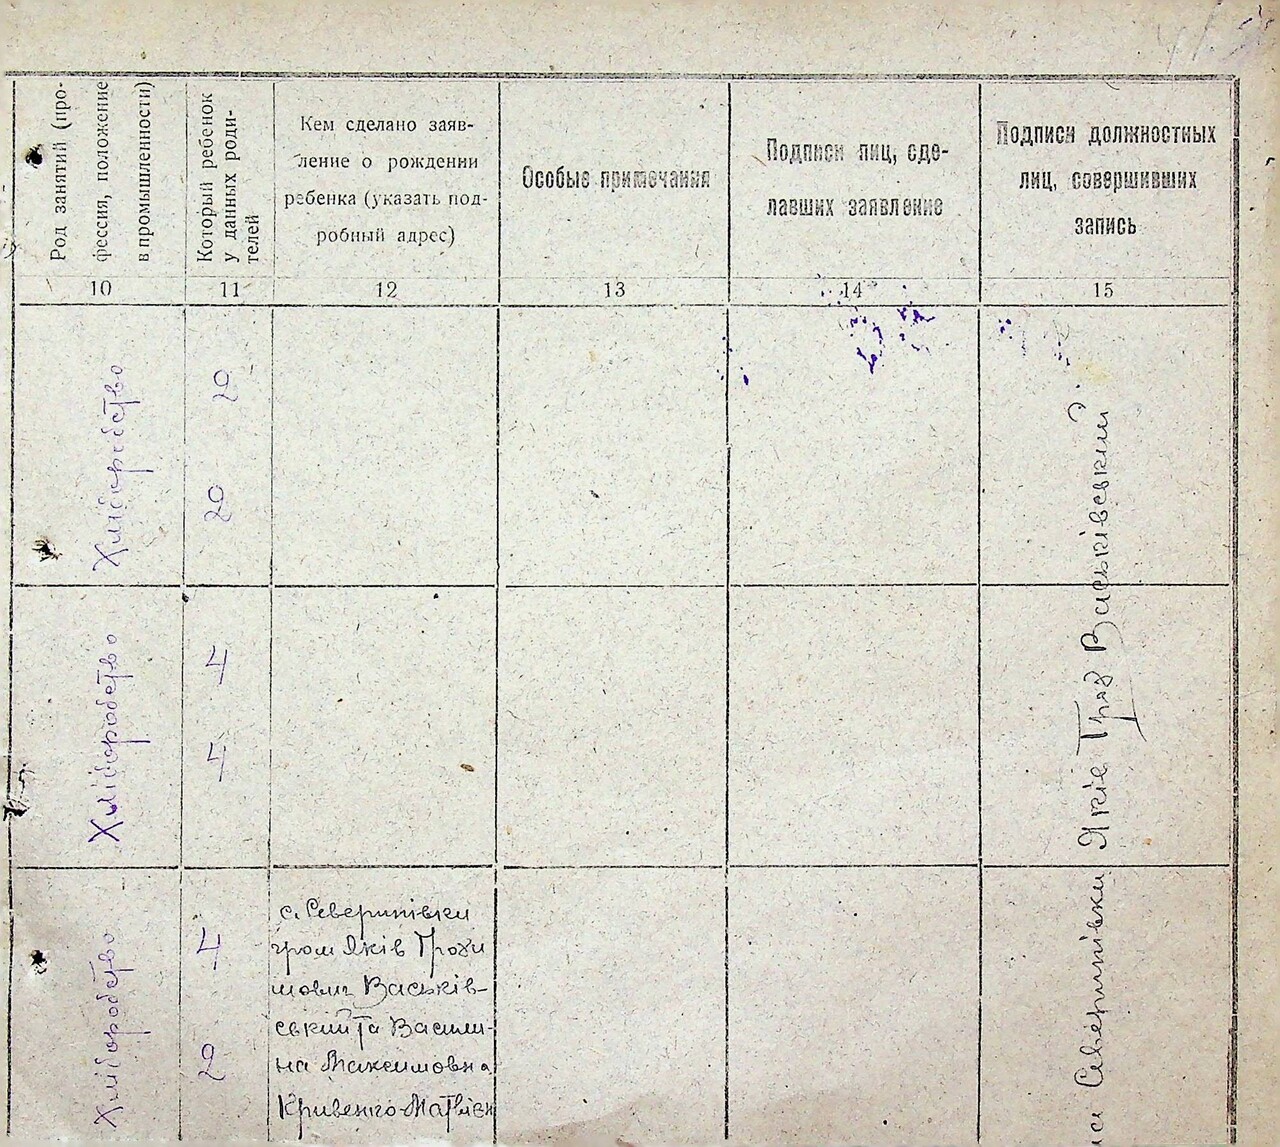 Род занятий (про-
фессия, положение
в промышленности)
Который ребенок
у данных роди-
телей
Кем сделано заяв-
ление о рождении
ребенка (указать под-
робный адрес)
Особые примечания
Подписи лиц, сде-
лавших заявление
Подписи должностных
лиц, совершивших
запись
10 11 12 13 14 15
Хліборобство
20
20
Хліборобство
4
4
Хліборобство
4
2
с. Северинівки
гром Яків Трохи
мович Васьків-
ський та Васили-
на Максимовна
Кривенко-Матвієн
Северинівки Яків Трох Васьківський